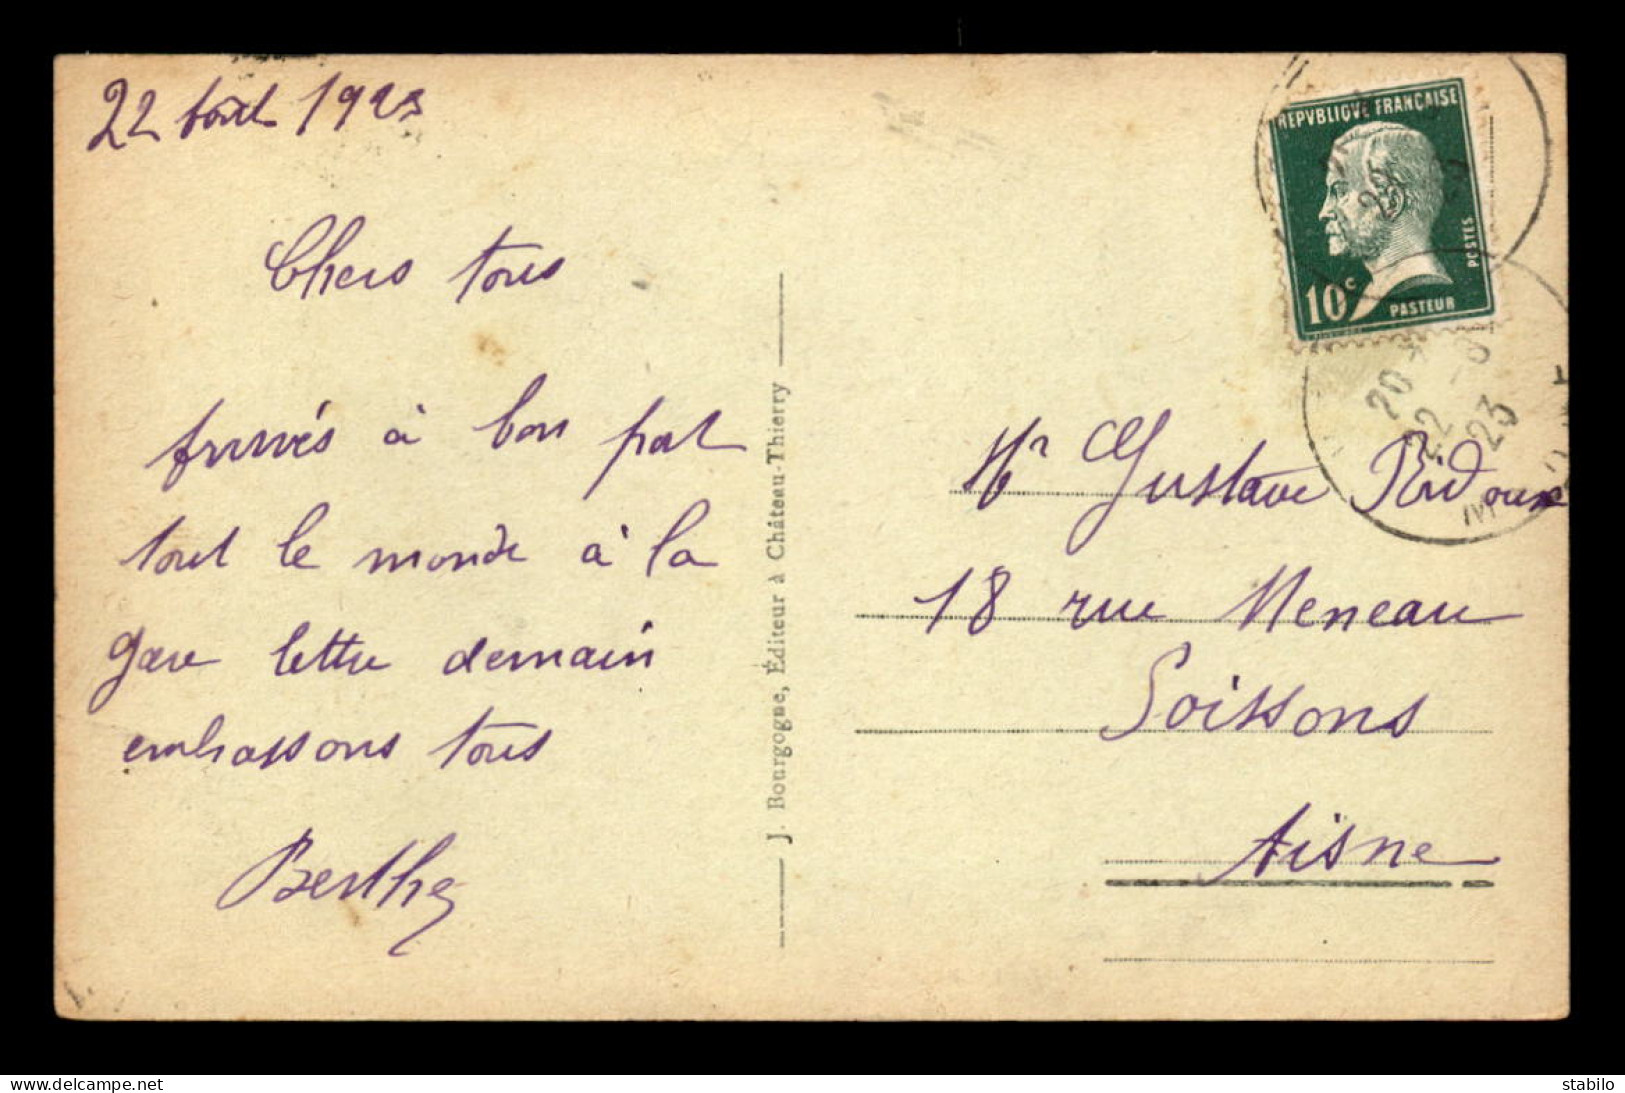 22 août 1923
Chers tous
Arrivés à bon port
tout le monde à la
gare lettre demain
embrassons tous
Berthe
J. Bourgogne, Éditeur à Château-Thierry
REPVBLIQVE FRANÇAISE
POSTES
10c
PASTEUR
20
22 -8
23
Mr Gustave Ridoux
18 rue Meneau
Soissons
Aisne
www.delcampe.net
stabilo